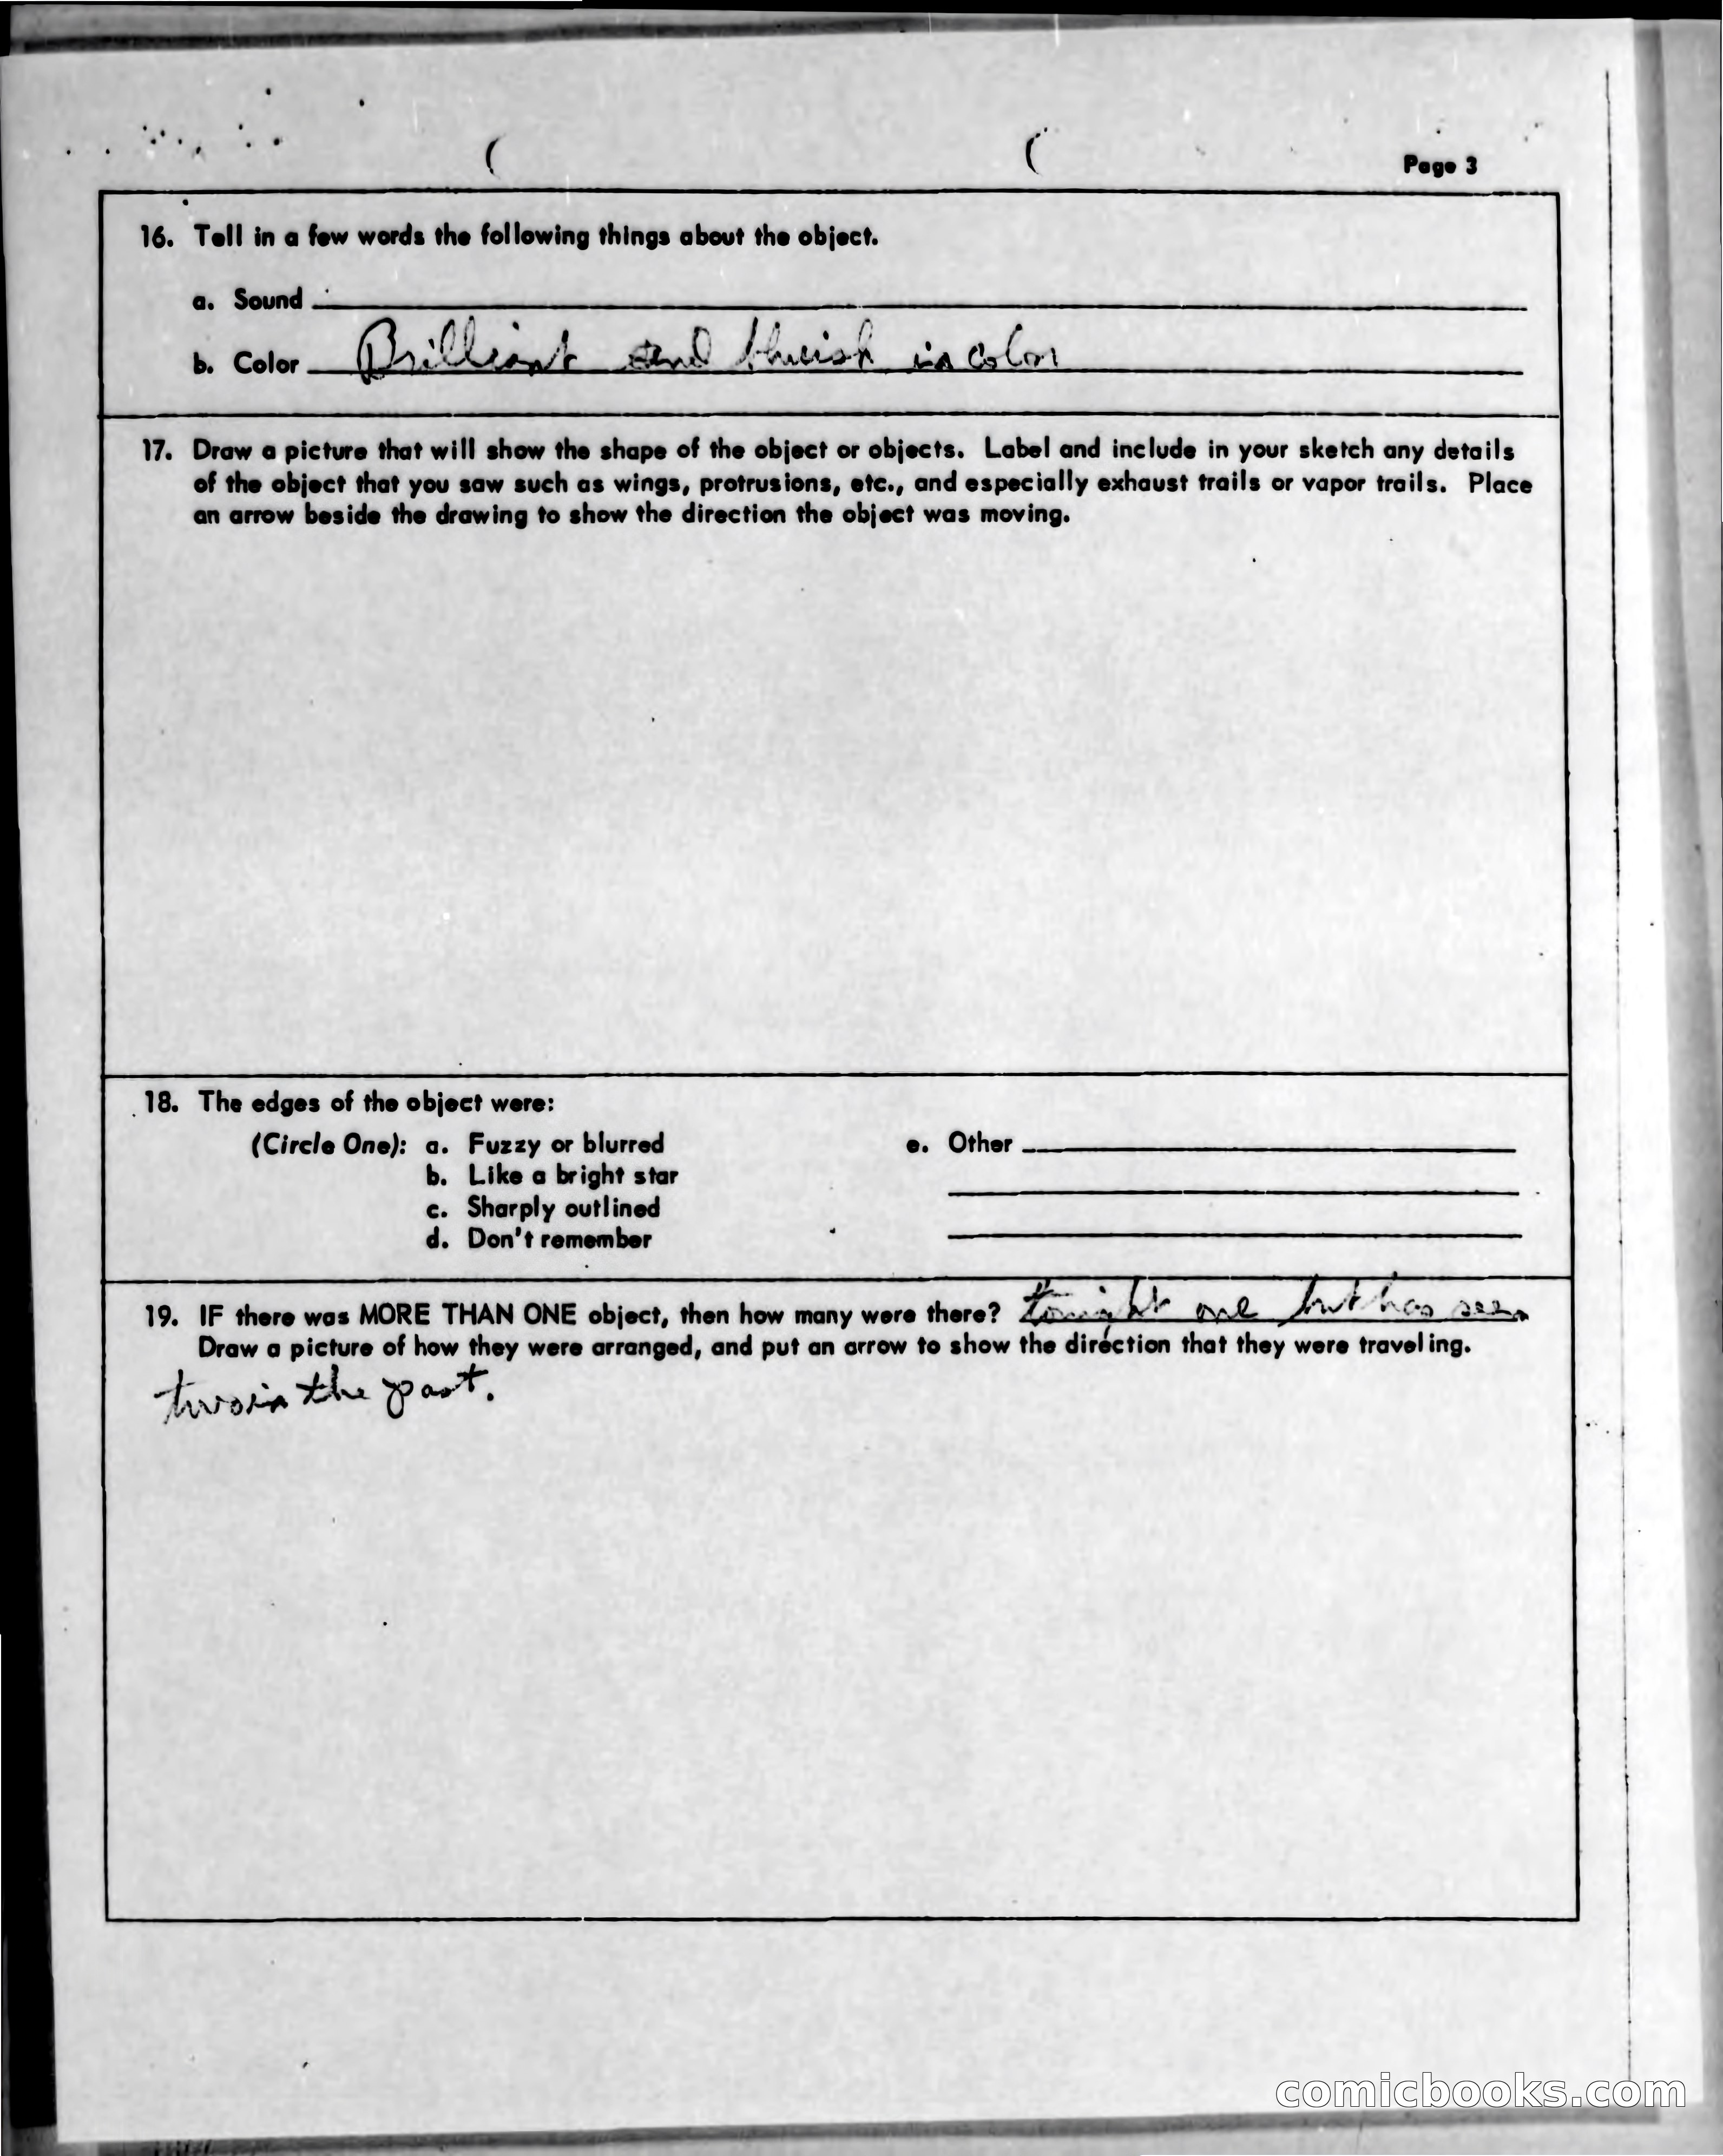 Page 3
16. Tell in a few words the following things about the object.
a. Sound
b. Color Brilliant and bluish in color
17. Draw a picture that will show the shape of the object or objects. Label and include in your sketch any details
of the object that you saw such as wings, protrusions, etc., and especially exhaust trails or vapor trails. Place
an arrow beside the drawing to show the direction the object was moving.
18. The edges of the object were:
(Circle One): a. Fuzzy or blurred e. Other
b. Like a bright star
c. Sharply outlined
d. Don't remember
19. IF there was MORE THAN ONE object, then how many were there? tonight one but has seen
Draw a picture of how they were arranged, and put an arrow to show the direction that they were traveling.
two in the past.
comicbooks.com